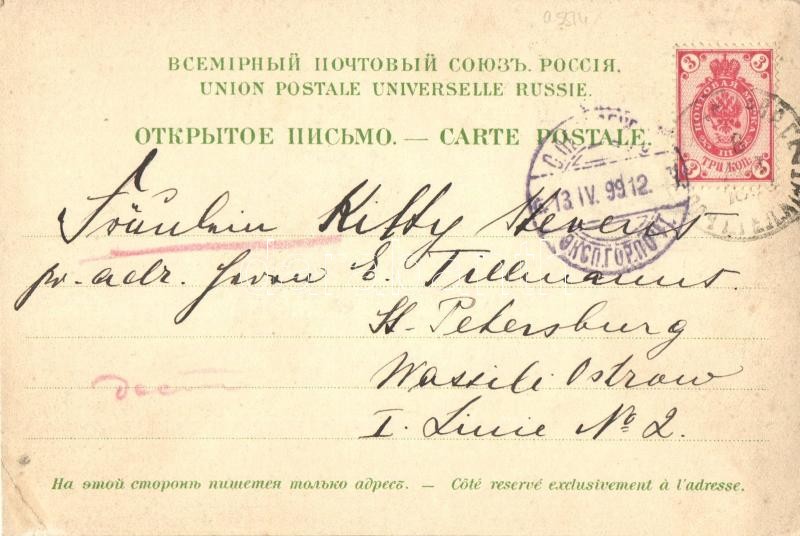 ВСЕМІРНЫЙ ПОЧТОВЫЙ СОЮЗЪ. РОССІЯ.
UNION POSTALE UNIVERSELLE RUSSIE.
ОТКРЫТОЕ ПИСЬМО. — CARTE POSTALE.
3 3
ПОЧТОВАЯ МАРКА
ТРИ КОП.
3 3
13 IV. 99 12
ЭКСП.ГОР.ПОЧТ
Fräulein Kitty Stevens
pr. adr. Herrn E. Tillmanns.
St. Petersburg
Wassili Ostrow
I. Linie № 2.
На этой сторонѣ пишется только адресъ. — Côté reservé exclusivement à l'adresse.